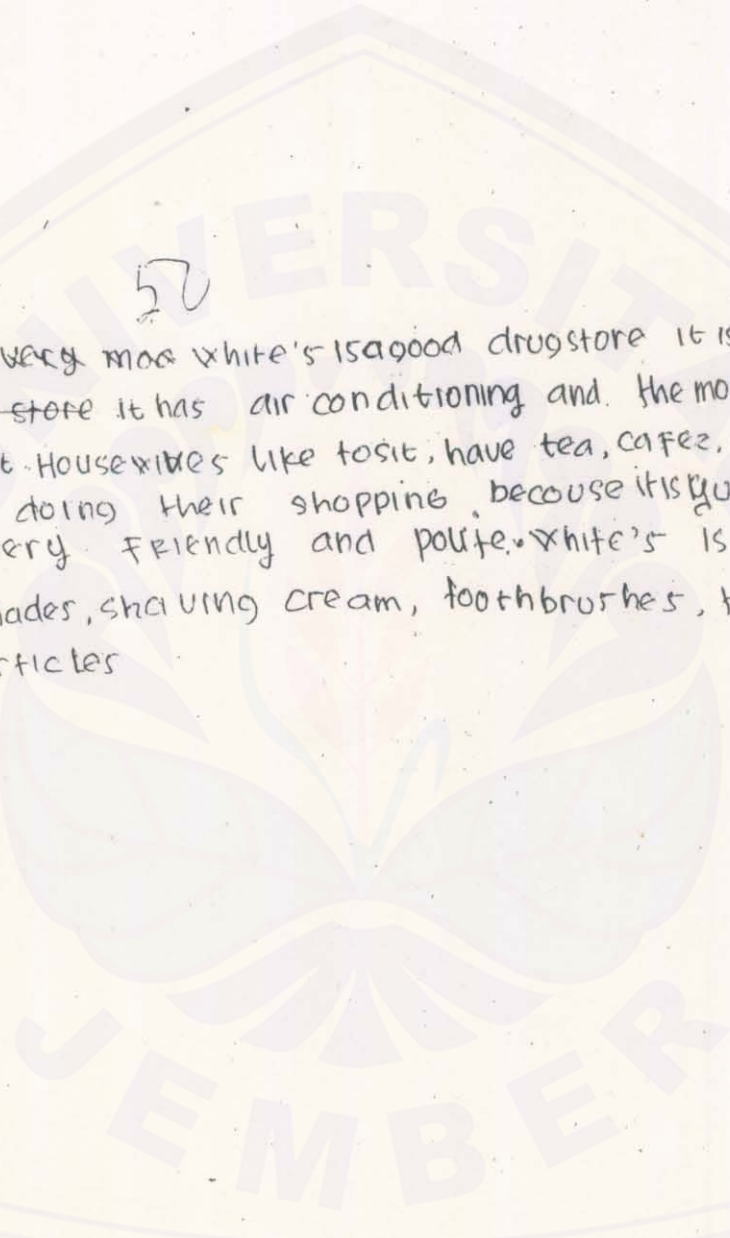 UNIVERSITA
52
very moo white's isagood drugstore it is
store it has air conditioning and. the mo
t. Housewives like tosit, have tea, cafez,
doing their shopping, becouse itisqu
ery Friendly and polite. white's is
lades, shaving cream, toothbrushes, t
rticles
JEMBER